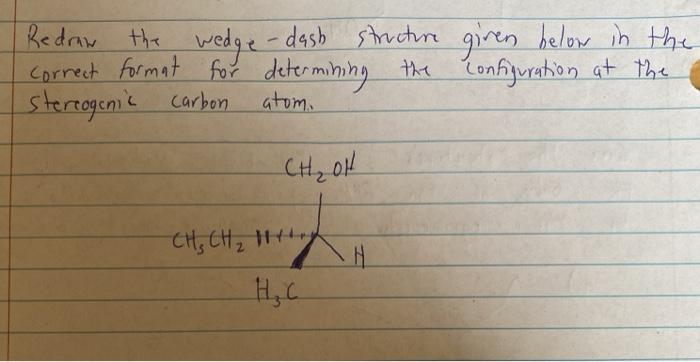 Redraw the wedge-dash structure given below in the
correct format for determining the configuration at the
stereogenic carbon atom.
CH₂OH
CH₃CH₂
H
H₃C